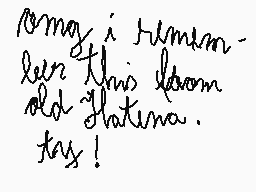 omg i remem-
ber this from
old Hatena.
ty!